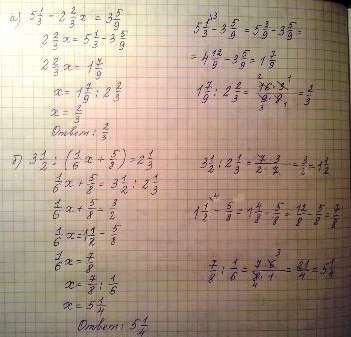 а) 5 1/3 - 2 2/3 x = 3 5/9
2 2/3 x = 5 1/3 - 3 5/9
2 2/3 x = 1 7/9
x = 1 7/9 : 2 2/3
x = 2/3
Ответ: 2/3
5 1/3 - 3 5/9 = 5 3/9 - 3 5/9 =
= 4 12/9 - 3 5/9 = 1 7/9
1 7/9 : 2 2/3 = 16·3/9·8 = 2/3
б) 3 1/2 : (1/6 x + 5/8) = 2 1/3
1/6 x + 5/8 = 3 1/2 : 2 1/3
1/6 x + 5/8 = 3/2
1/6 x = 1 1/2 - 5/8
1/6 x = 7/8
x = 7/8 : 1/6
x = 5 1/4
Ответ: 5 1/4
3 1/2 : 2 1/3 = 7·3/2·7 = 3/2 = 1 1/2
1 1/2 - 5/8 = 1 4/8 - 5/8 = 12/8 - 5/8 = 7/8
7/8 : 1/6 = 7·6/8·1 = 21/4 = 5 1/4